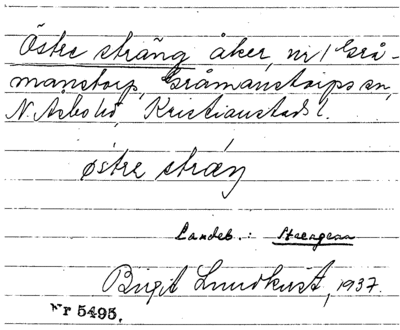 Östre sträng åker, nr 1 Grå-
manstorp, Gråmanstorps sn,
N. Åsbo hd, Kristianstads l.
östre sträŋ
Landeb.:
Birgit Lundkvist, 1937.
Nr 5495.